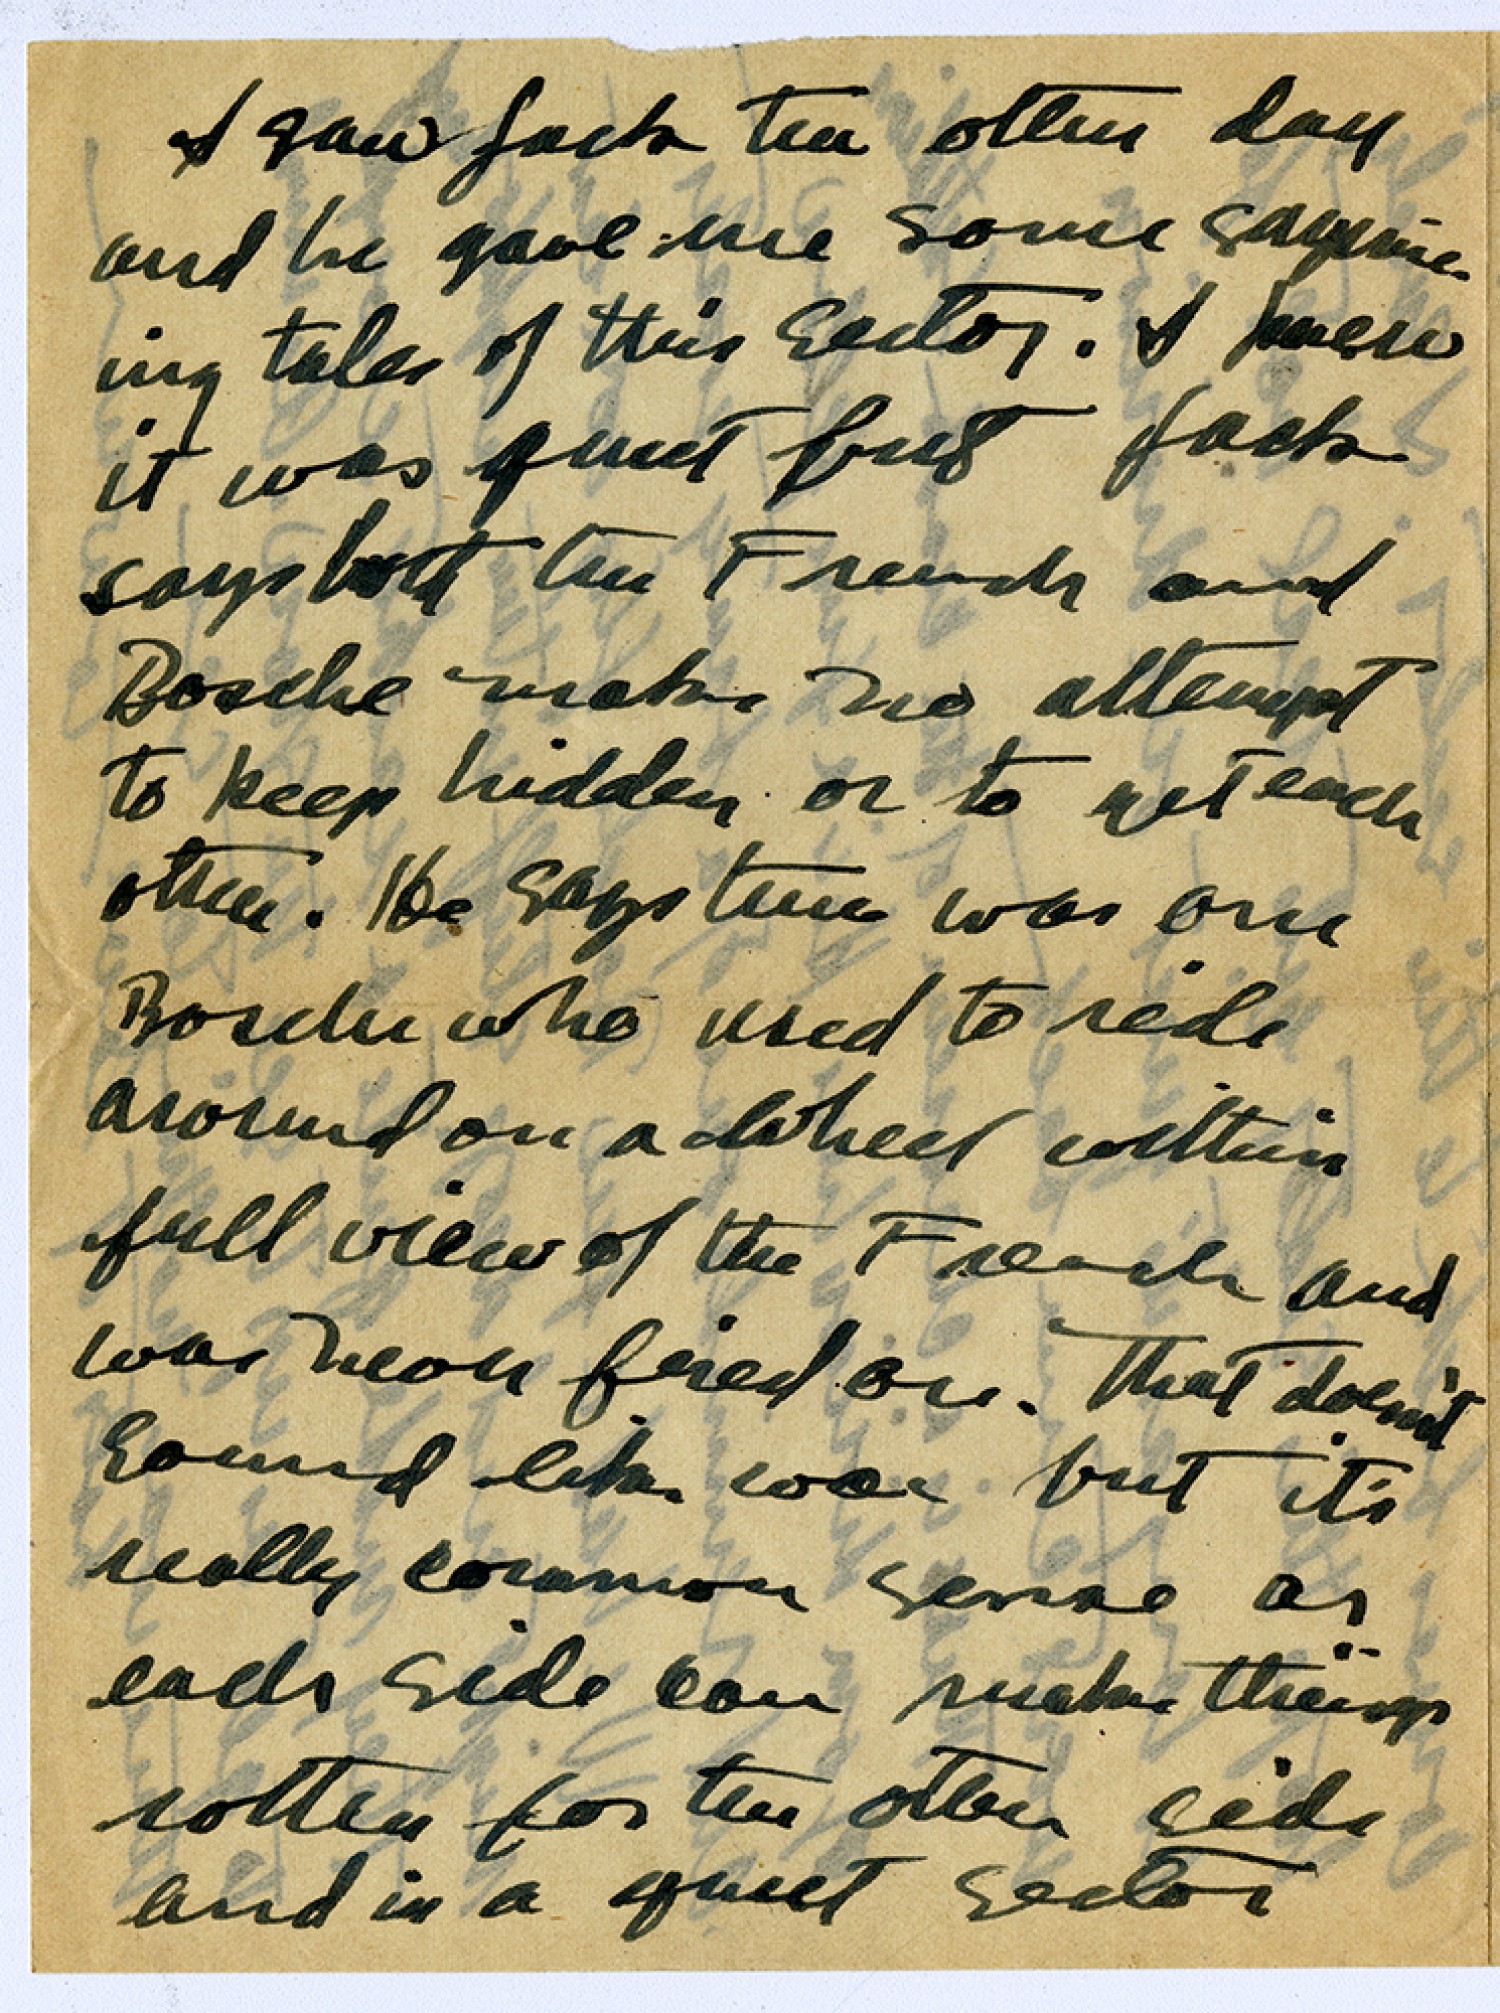 I saw Jack the other day
and he gave me some
ing tales of this sector. I knew
it was quiet but Jack
says both the French and
Bosche make no attempt
to keep hidden or to get each
other. He says there was one
Bosche who used to ride
around on a wheel within
full view of the French and
was never fired on. That doesn't
sound like war but it's
really common sense as
each side can make things
rotten for the other side
and in a quiet sector